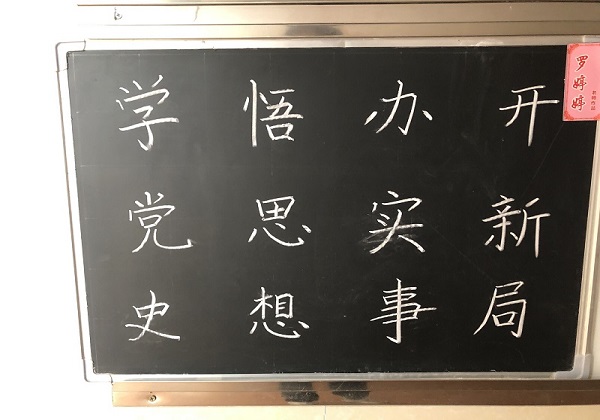 学党史
悟思想
办实事
开新局
罗婷婷